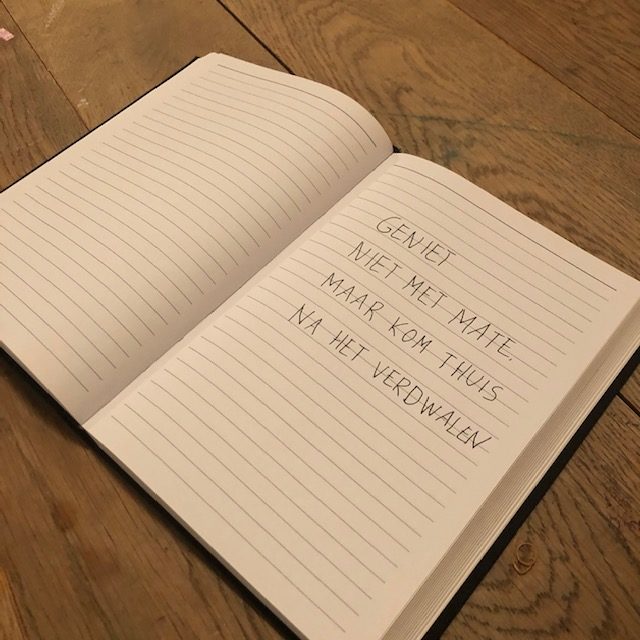 GENIET
NIET MET MATE.
MAAR KOM THUIS
NA HET VERDWALEN